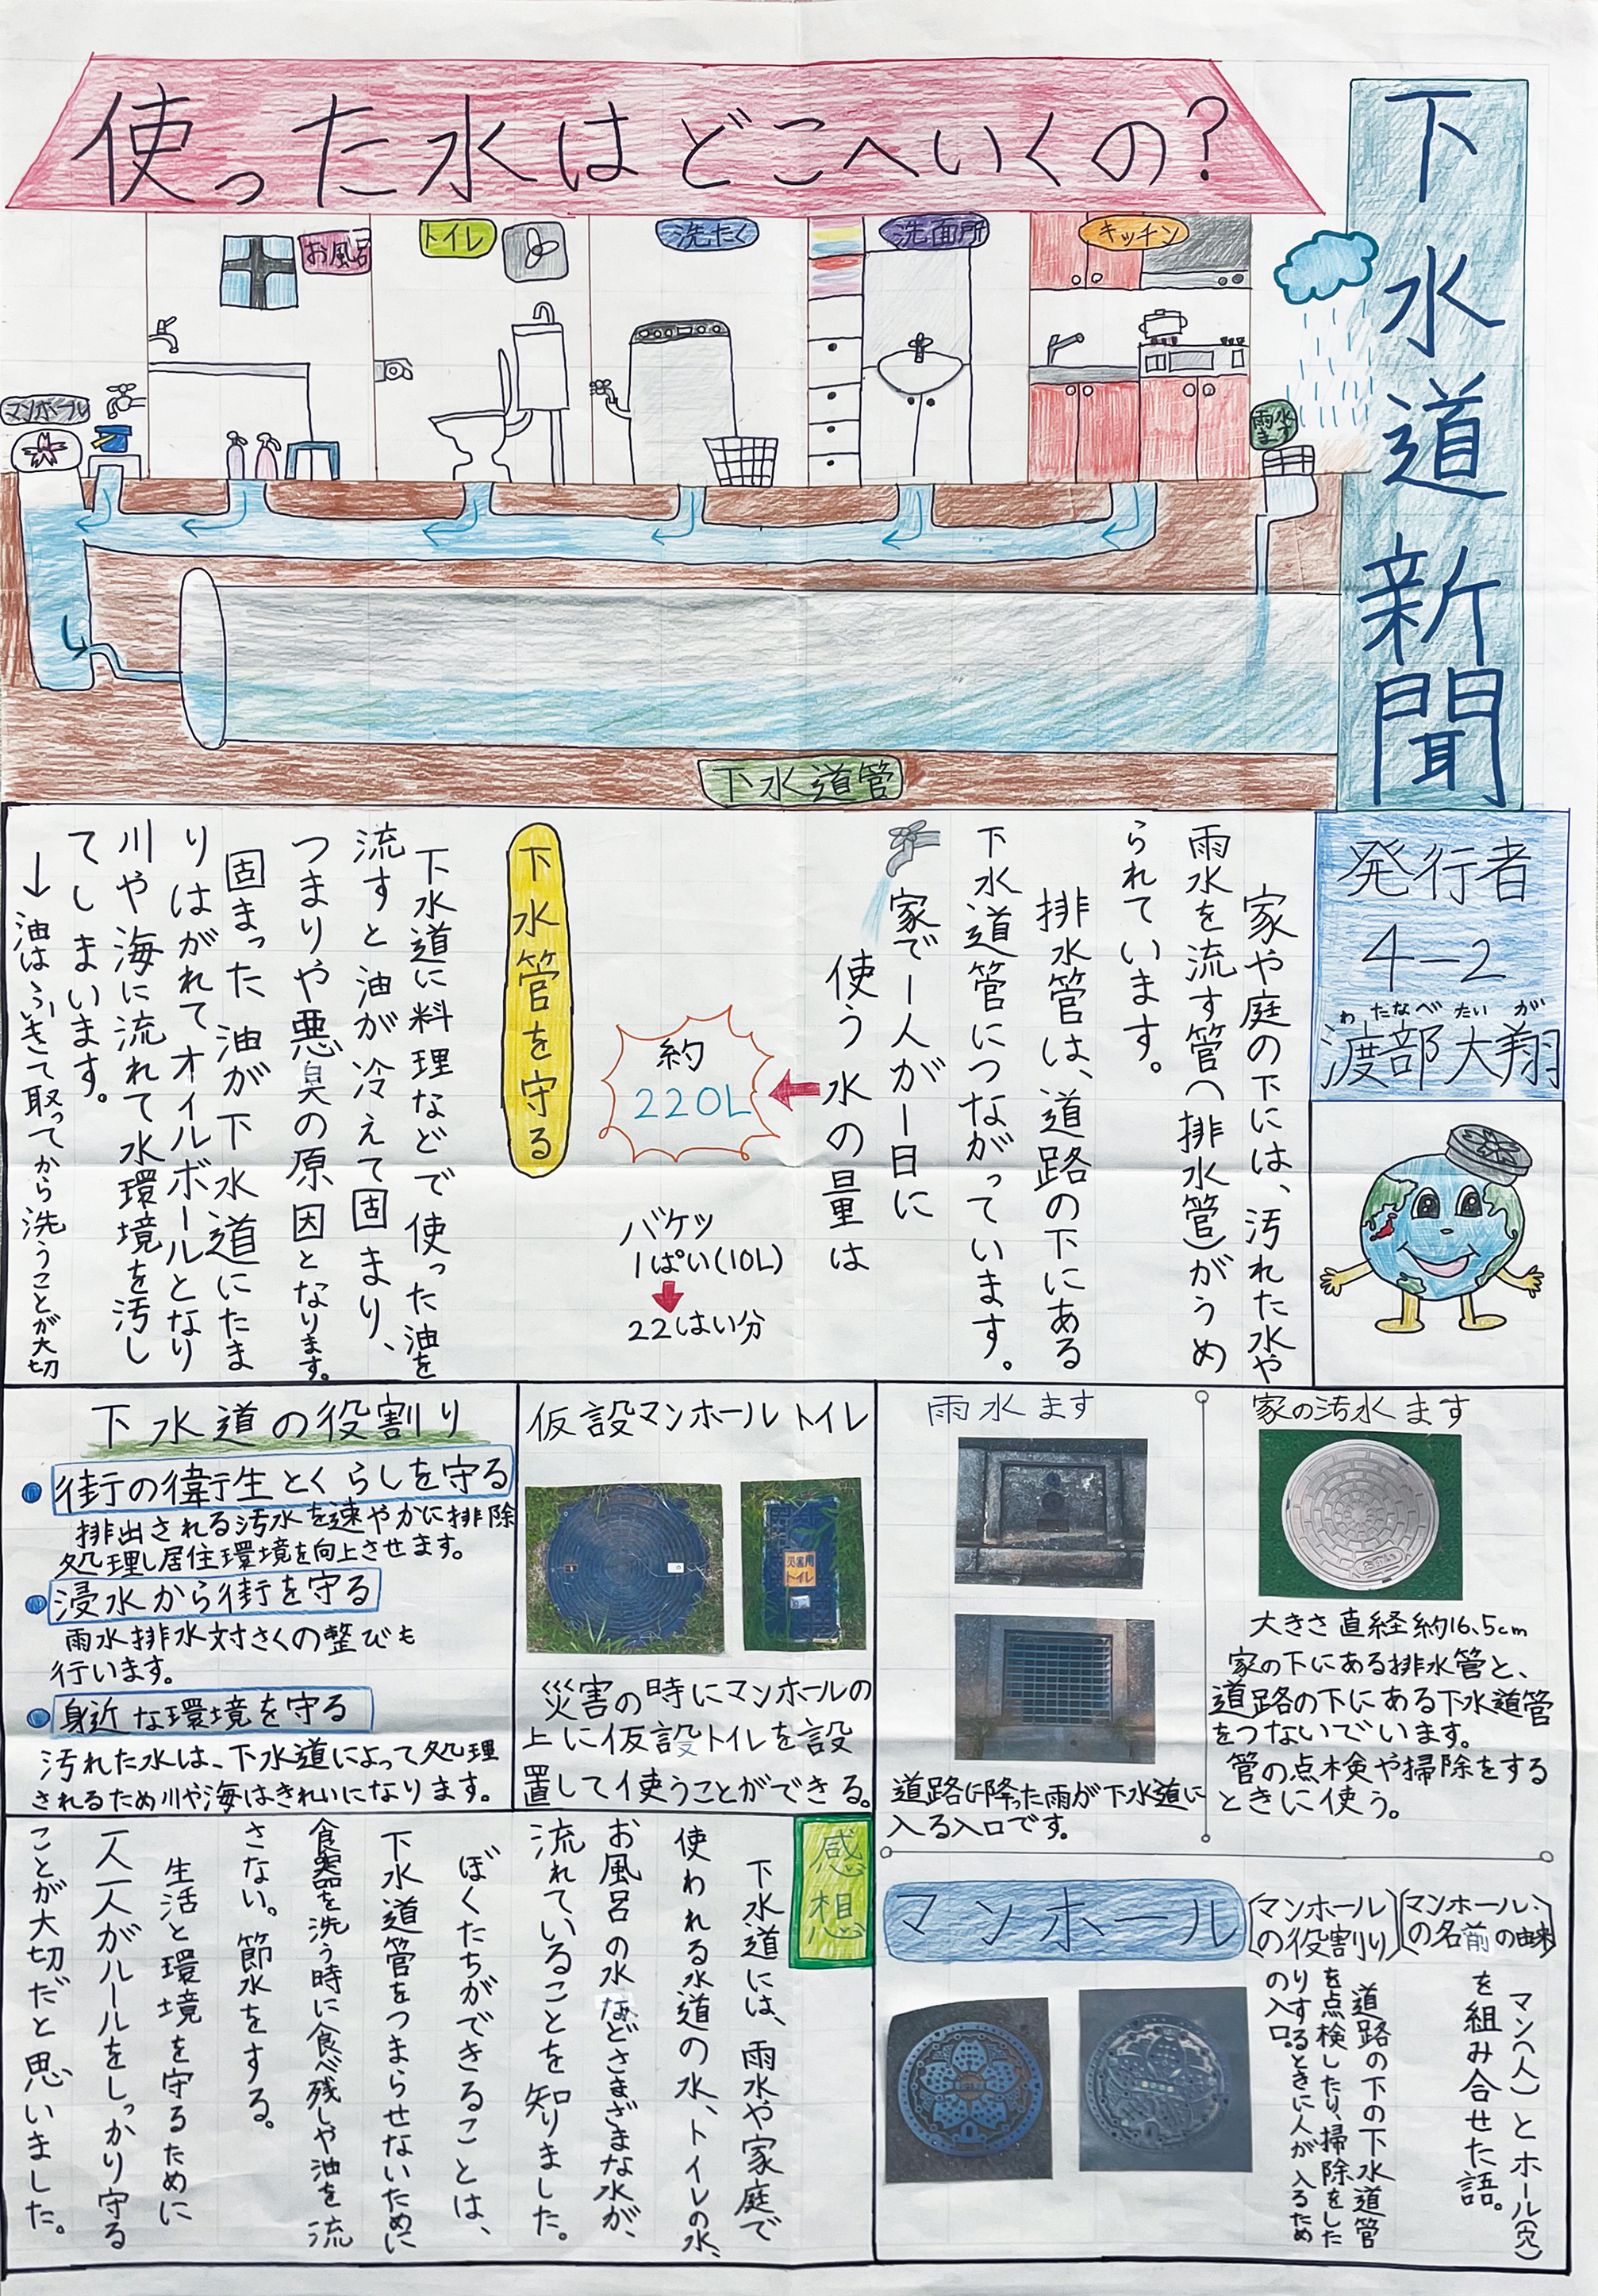 下水道新聞
使った水はどこへいくの?
お風呂
トイレ
洗たく
洗面所
キッチン
マンホール
雨水
ます
下水道管
発行者
4-2
わたなべ たいが
渡部大翔
家や庭の下には、汚れた水や
雨水を流す管(排水管)がうめ
られています。
排水管は、道路の下にある
下水道管につながっています。
家で一人が一日に
使う水の量は
約
220L
バケツ
1ぱい(10L)
22はい分
下水管を守る
下水道に料理などで使った油を
流すと油が冷えて固まり、
つまりや悪臭の原因となります。
固まった油が下水道にたま
りはがれてオイルボールとなり
川や海に流れて水環境を汚し
てしまいます。
→油はふいきて取ってから洗うことが大切
家の汚水ます
大きさ直経約16.5cm
家の下にある排水管と、
道路の下にある下水道管
をつないでいます。
管の点検や掃除をする
ときに使う。
雨水ます
道路に降った雨が下水道に
入る入口です。
仮設マンホールトイレ
災害用
トイレ
災害の時にマンホールの
上に仮設トイレを設
置して使うことができる。
下水道の役割り
●街の衛生とくらしを守る
排出される汚水を速やかに排除
処理し居住環境を向上させます。
●浸水から街を守る
雨水排水対さくの整びも
行います。
●身近な環境を守る
汚れた水は、下水道によって処理
されるため川や海はきれいになります。
マンホール
(マンホール
の名前の由来)
マン(人)とホール(穴)
を組み合せた語。
(マンホール
の役割り)
道路の下の下水道管
を点検したり、掃除をした
りするときに人が入るため
の入口。
感想
下水道には、雨水や家庭で
使われる水道の水、トイレの水、
お風呂の水などさまざまな水が、
流れていることを知りました。
ぼくたちができることは、
下水道管をつまらせないために
食器を洗う時に食べ残しや油を流
さない。節水をする。
生活と環境を守るために
一人一人がルールをしっかり守る
ことが大切だと思いました。